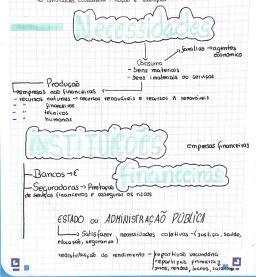 Necessidades
famílias → agentes
económico
Consumo
- bens materiais
- bens imateriais ou serviços
Produção
→ empresas não financeiras
- recursos naturais → recursos renováveis e recursos ñ renováveis
- " financeiros
- " técnicos
- " humanos
INSTITUIÇÕES
empresas financeiras
Financeiras
- Bancos → €
- Seguradoras → Prestação
de serviços financeiros e assegurar os riscos
ESTADO OU ADMINISTRAÇÃO PÚBLICA
→ Satisfazer necessidades coletivas → (justiça, saúde,
educação, segurança)
redistribuição do rendimento → repartição secundária
repartição primária
juros, rendas, lucros, salários